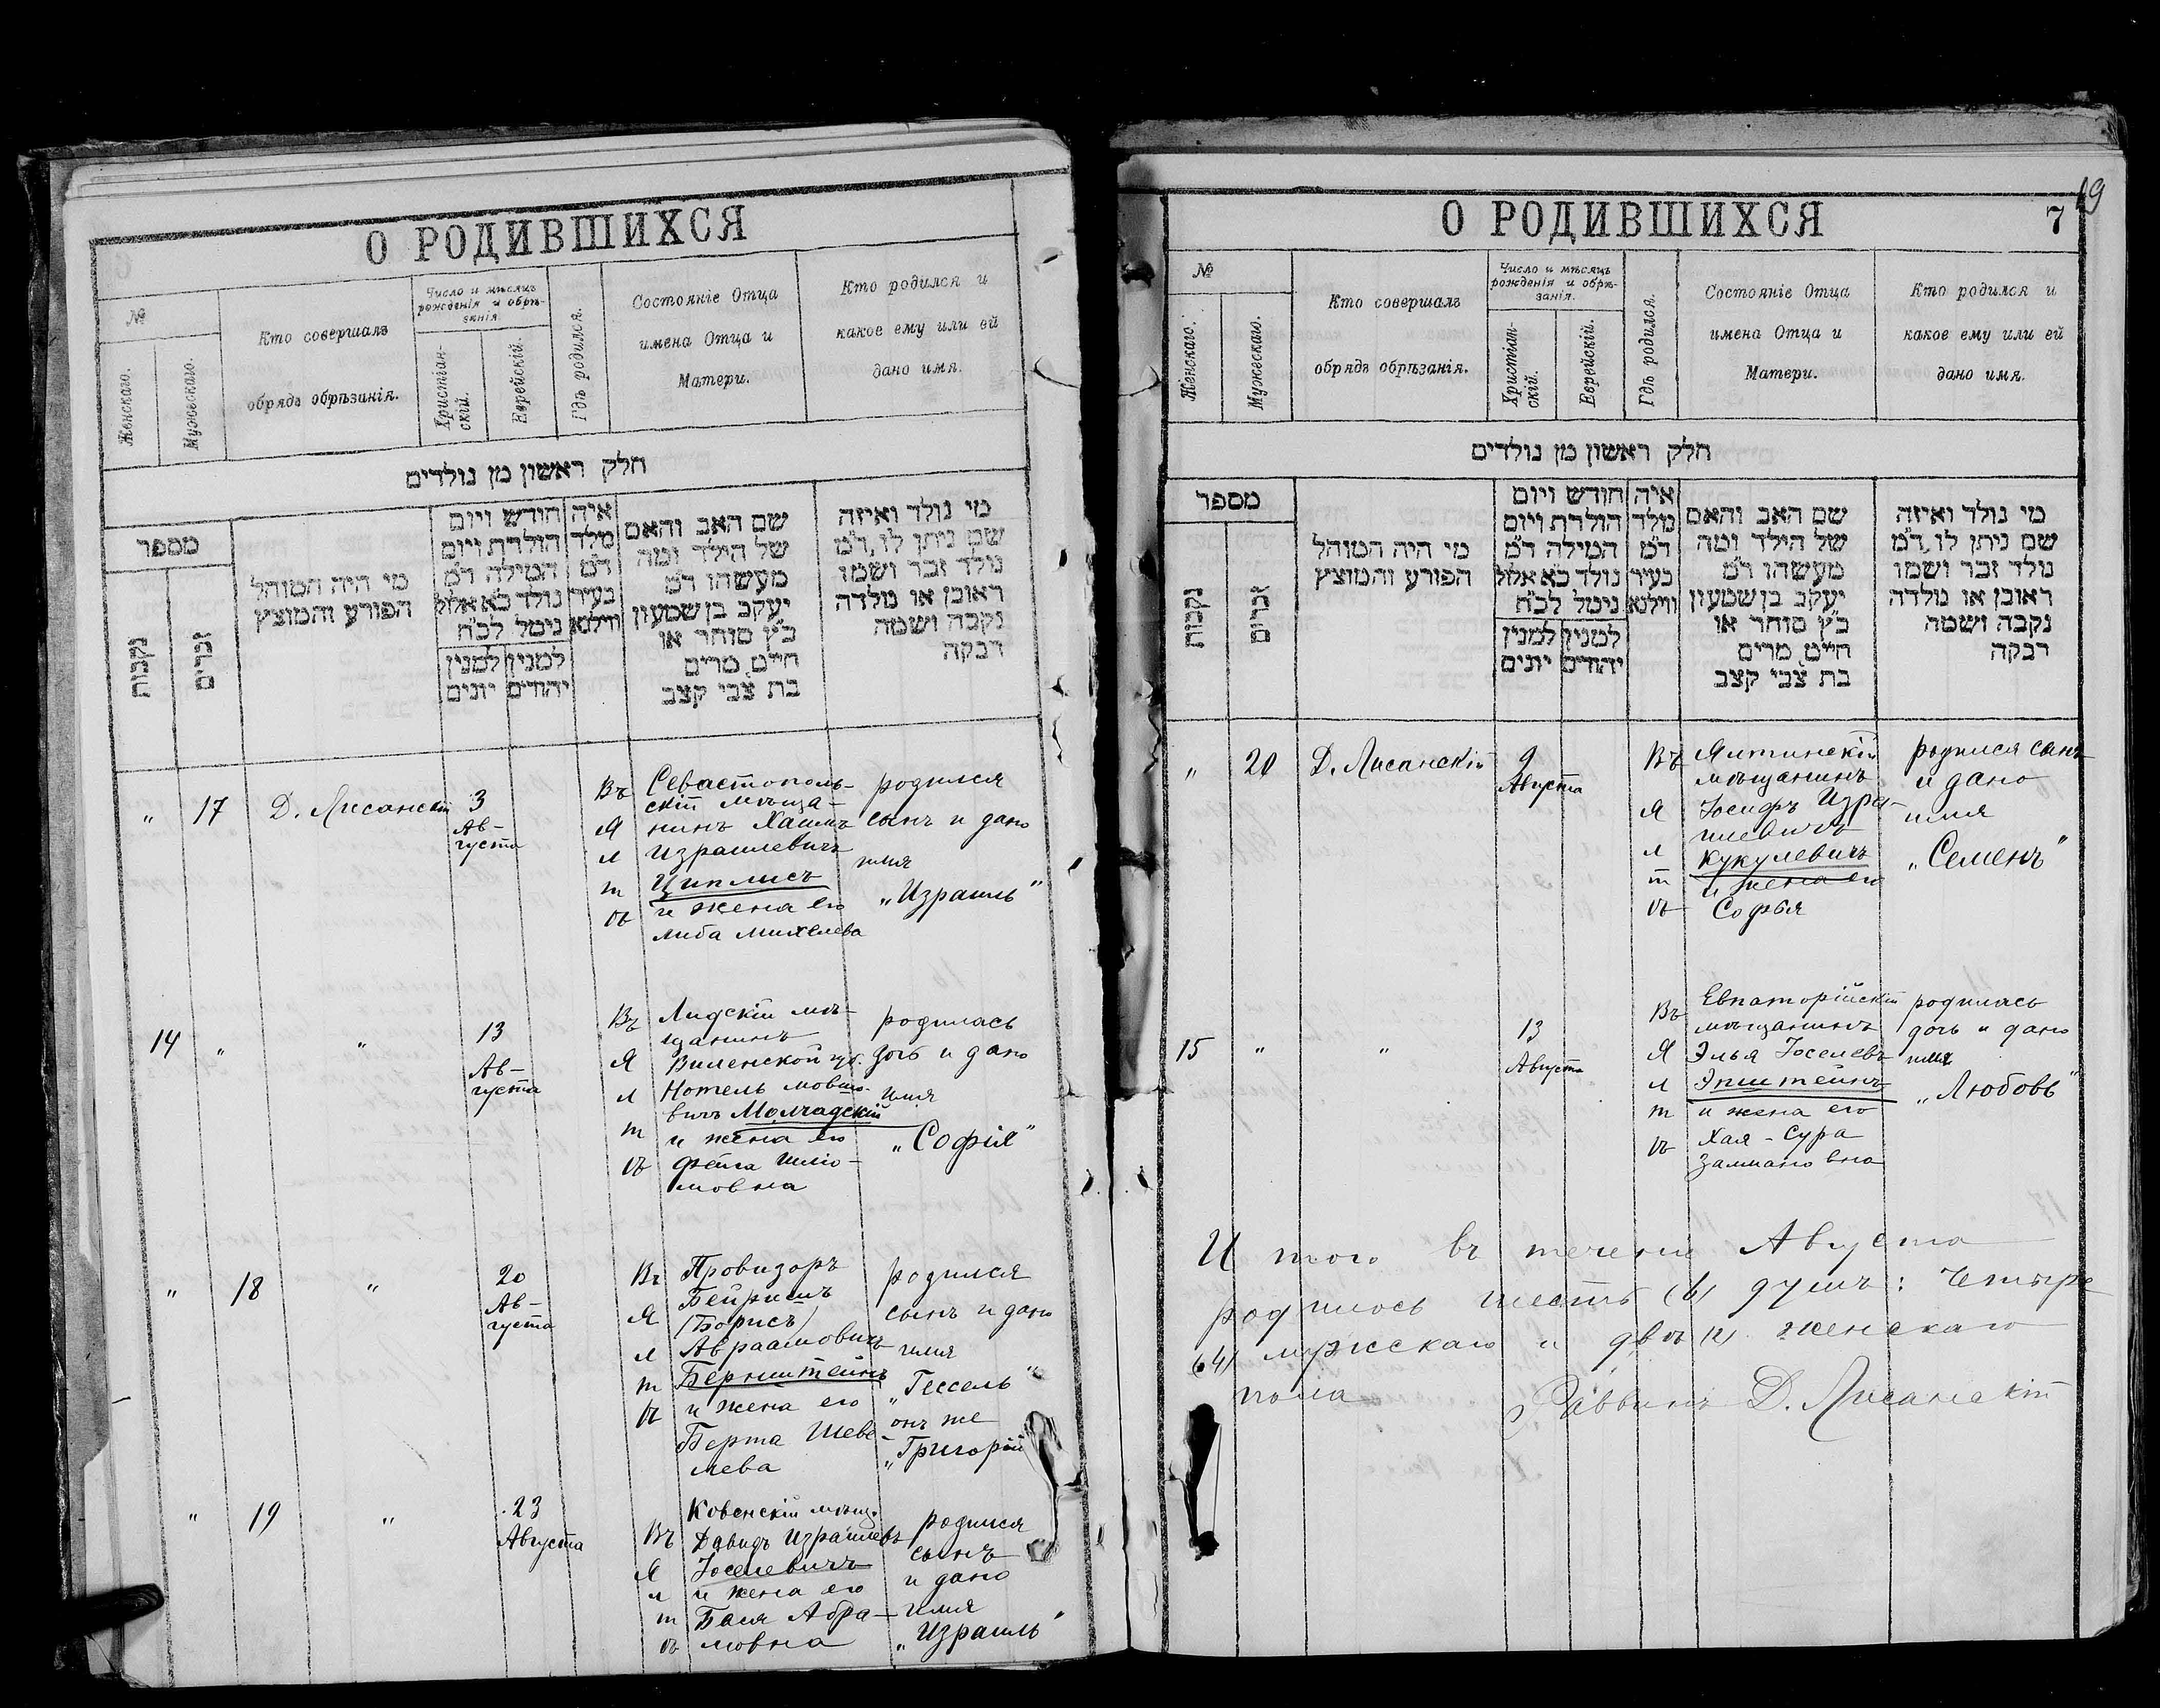 О РОДИВШИХСЯ
№
Женскаго.
Мужескаго.
Кто совершалъ
обрядъ обрѣзанія.
Число и мѣсяцъ
рожденія и обрѣ-
занія.
Христіан-
скій.
Еврейскій.
Гдѣ родился.
Состояніе Отца
имена Отца и
Матери.
Кто родился и
какое ему или ей
дано имя.
חלק ראשון מן נולדים
מספר
נקבות
זכרים
מי היה המוהל
הפורע והמוצץ
חודש ויום
הולדת ויום
המילה ד״מ
נולד כ״א אלול
נימל לכ״ח
למנין
יהודים
למנין
יונים
איה
מלד
ד״מ
בעיר
ווילנא
שם האב והאם
של הילד ומה
מעשהו ד״מ
יעקב בן שמעון
כ״ץ סוחר או
חייט מרים
בת צבי קצב
מי נולד ואיזה
שם ניתן לו ד״מ
נולד זכר ושמו
ראובן או נולדה
נקבה ושמה
רבקה
" 17 Д. Лисанскій
3
Ав-
густа
Въ
Я
л
т
ѣ
Севастополь-
скій мѣща-
нинъ Хаимъ
Израилевичъ
Циплисъ
и жена его
Либа Михелева
родился
сынъ и дано
имя
„Израиль"
14 " "
13
Ав-
густа
Въ
Я
л
т
ѣ
Лидскій мѣ-
щанинъ
Виленской губ.
Нотель Мовшо-
вичъ Молчадскій
и жена его
Фейга Шліо-
мовна
родилась
дочь и дано
имя
„Софія"
" 18 "
20
Ав-
густа
Въ
Я
л
т
ѣ
Провизоръ
Бейришъ
(Борисъ)
Авраамовичъ
Бернштейнъ
и жена его
Берта Шеве-
лева
родился
сынъ и дано
имя
„Гессель"
онъ же
„Григорій
" 19 "
23
Августа
Въ
Я
л
т
ѣ
Ковенскій мѣщ.
Давидъ Израилевъ
Іоселевичъ
и жена его
Бася Абра-
мовна
родился
сынъ
и дано
имя
„Израиль"
О РОДИВШИХСЯ
7
19
№
Женскаго.
Мужескаго.
Кто совершалъ
обрядъ обрѣзанія.
Число и мѣсяцъ
рожденія и обрѣ-
занія.
Христіан-
скій.
Еврейскій.
Гдѣ родился.
Состояніе Отца
имена Отца и
Матери.
Кто родился и
какое ему или ей
дано имя.
חלק ראשון מן נולדים
מספר
נקבות
זכרים
מי היה המוהל
הפורע והמוצץ
חודש ויום
הולדת ויום
המילה ד״מ
נולד כ״א אלול
נימל לכ״ח
למנין
יהודים
למנין
יונים
איה
מלד
ד״מ
בעיר
ווילנא
שם האב והאם
של הילד ומה
מעשהו ד״מ
יעקב בן שמעון
כ״ץ סוחר או
חייט מרים
בת צבי קצב
מי נולד ואיזה
שם ניתן לו ד״מ
נולד זכר ושמו
ראובן או נולדה
נקבה ושמה
רבקה
" 20 Д. Лисанскій
9
Августа
Въ
Я
л
т
ѣ
Ялтинскій
мѣщанинъ
Іосифъ Изра-
илевичъ
Кукулевичъ
и жена его
Софья
родился сынъ
и дано
имя
„Семенъ"
15 " "
13
Августа
Въ
Я
л
т
ѣ
Евпаторійскій
мѣщанинъ
Элья Іоселевъ
Эпштейнъ
и жена его
Хая-Сура
Залмановна
родилась
дочь и дано
имя
„Любовь"
Итого въ теченіи Августа
родилось шесть (6) душъ: Четыре
(4) мужскаго и двѣ (2) женскаго
пола
Раввинъ Д. Лисанскій